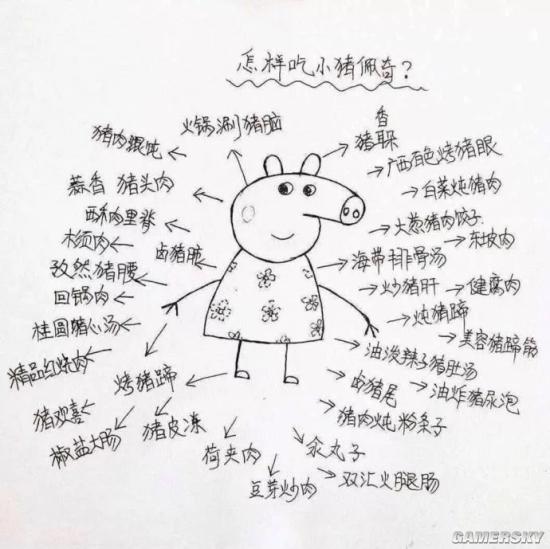 怎样吃小猪佩奇?
火锅涮猪脑
猪肉馄饨
蒜香 猪头肉
西和肉里脊
木须肉
卤猪脏
孜然猪腰
回锅肉
桂圆猪心汤
精品红烧肉
烤猪蹄
猪欢喜
猪皮冻
椒盐大肠
荷夹肉
豆芽炒肉
香
猪耳
广西百色烤猪眼
白菜炖猪肉
大葱猪肉饺子
东坡肉
海带排骨汤
炒猪肝
健腐肉
炖猪蹄
美容猪蹄筋
油泼辣子猪肚汤
卤猪尾
油炸猪尿泡
猪肉炖粉条子
汆丸子
双汇火腿肠
GAMERSKY